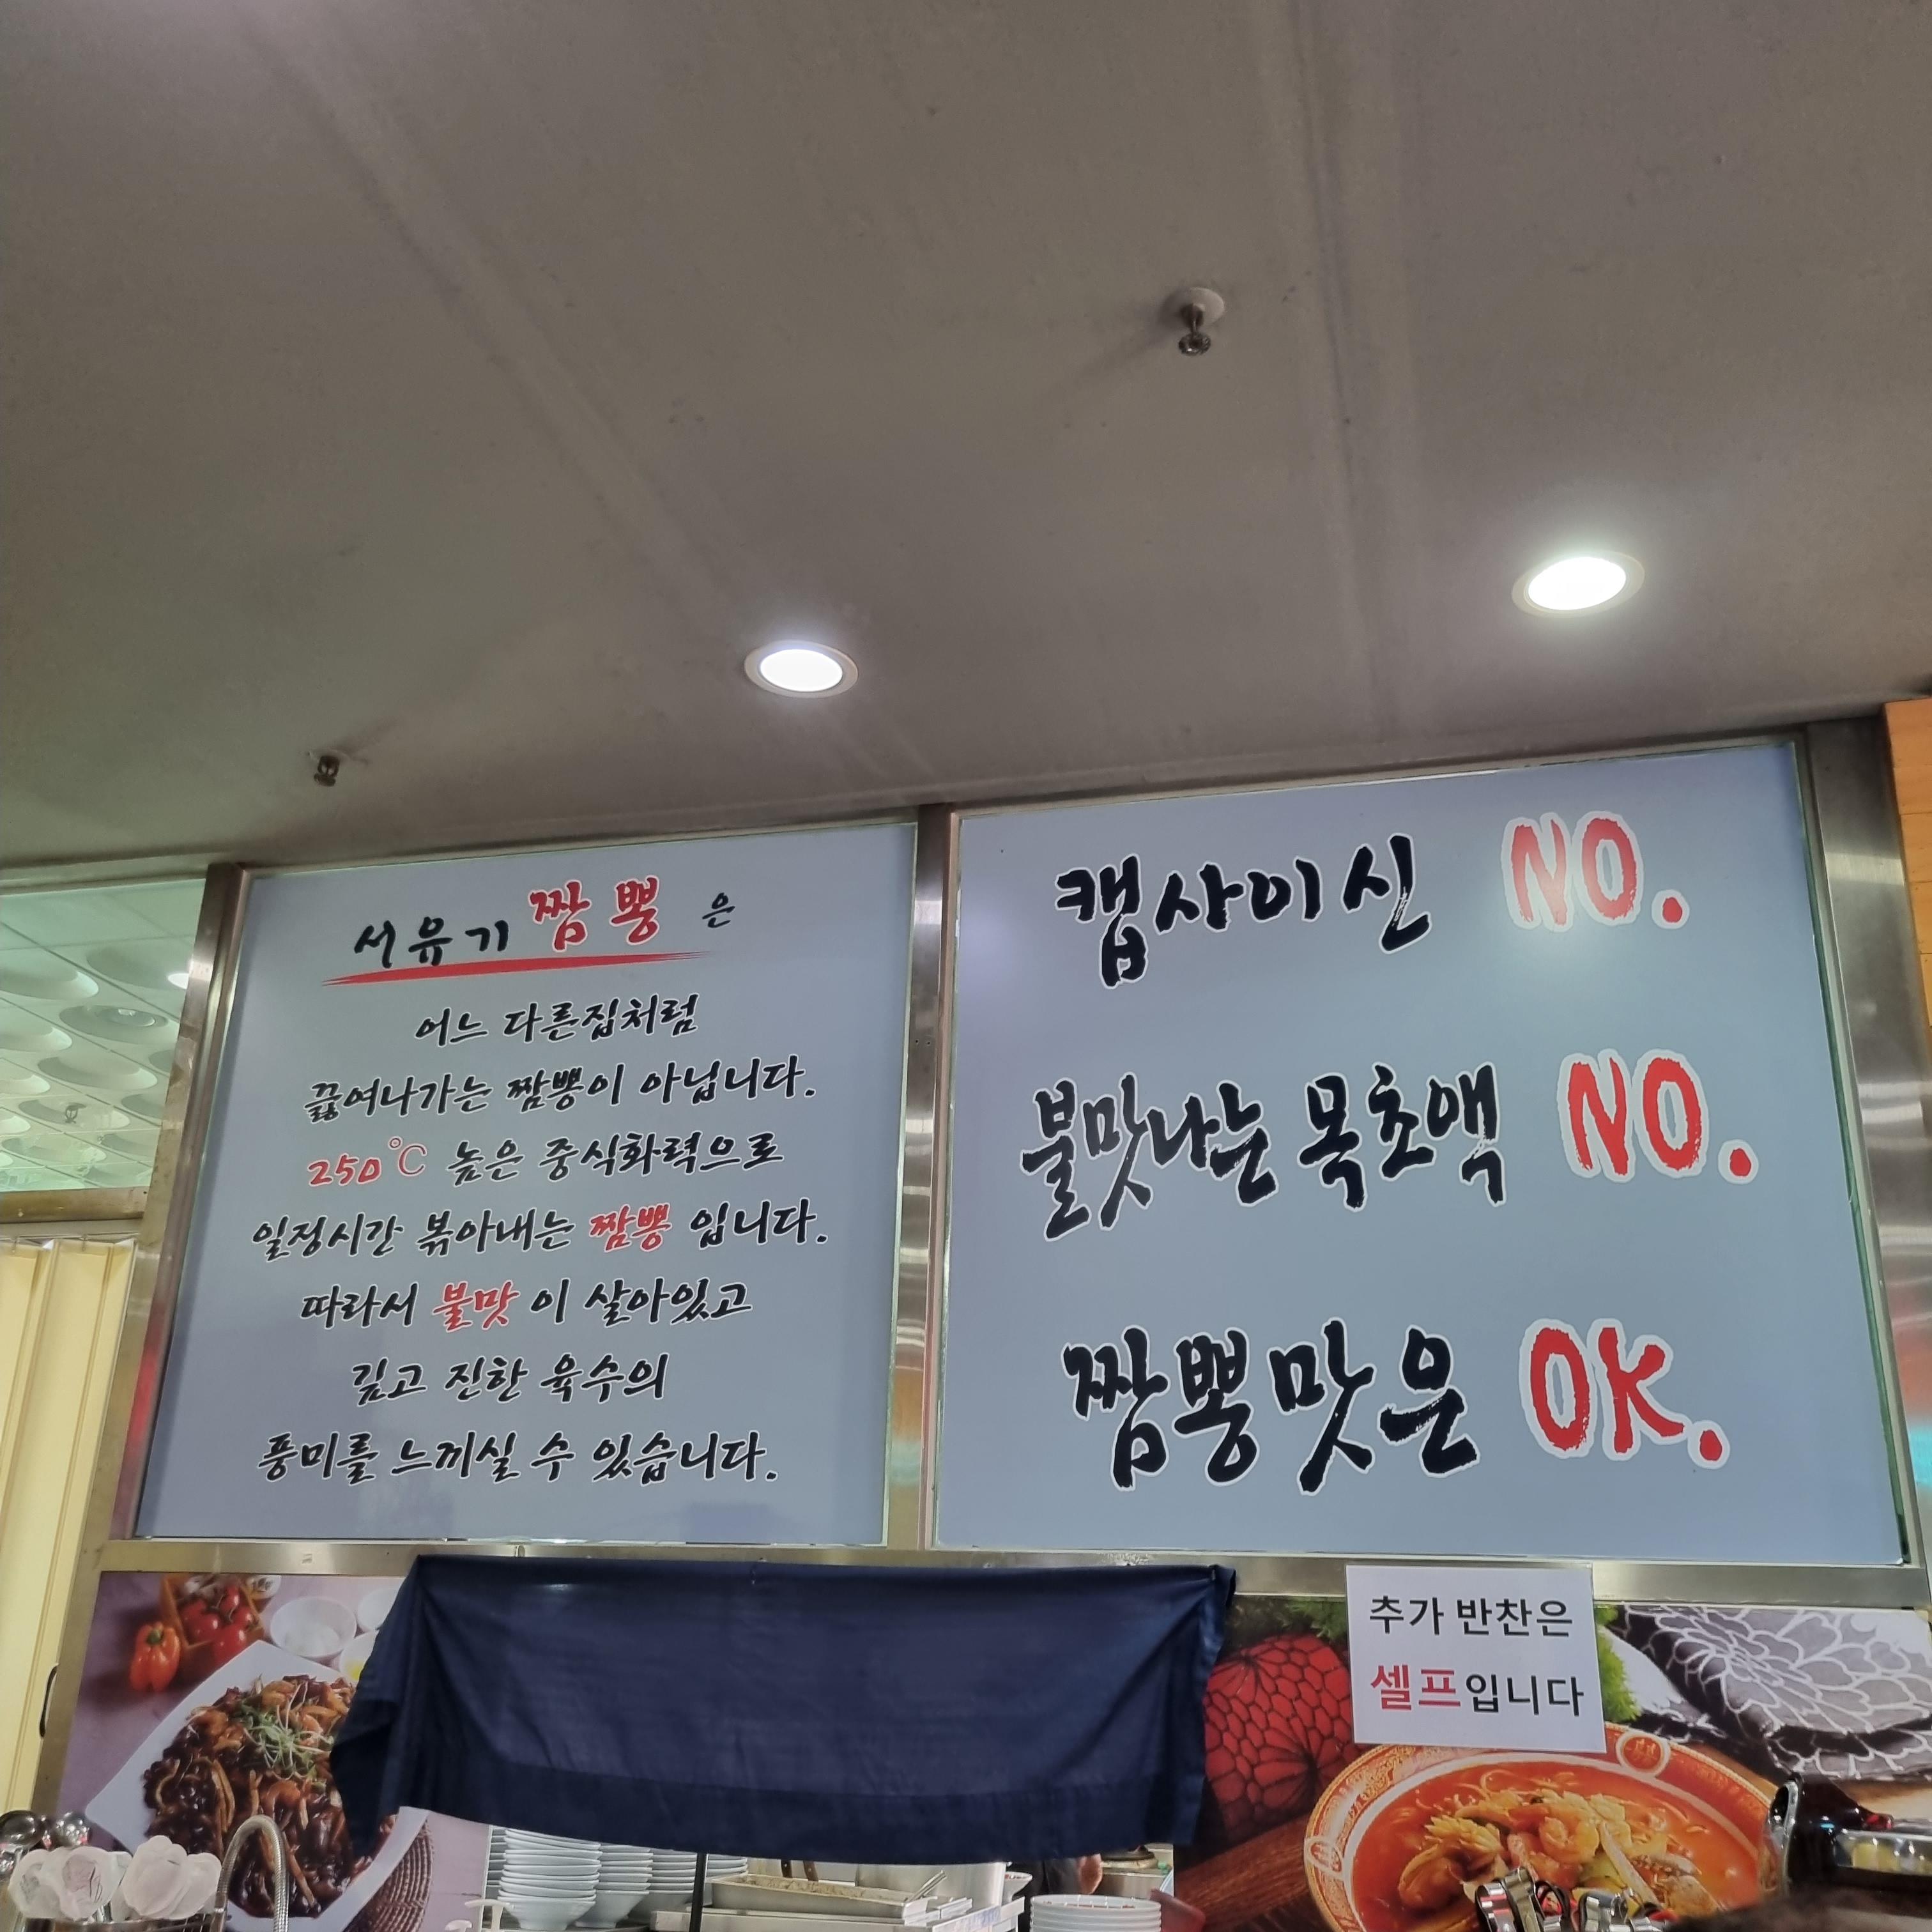 서유기 짬뽕 은
어느 다른집처럼
끓여나가는 짬뽕이 아닙니다.
250℃ 높은 중식화력으로
일정시간 볶아내는 짬뽕 입니다.
따라서 불맛 이 살아있고
깊고 진한 육수의
풍미를 느끼실 수 있습니다.
캡사이신 NO.
불맛나는 목초액 NO.
짬뽕맛은 OK.
추가 반찬은
셀프입니다